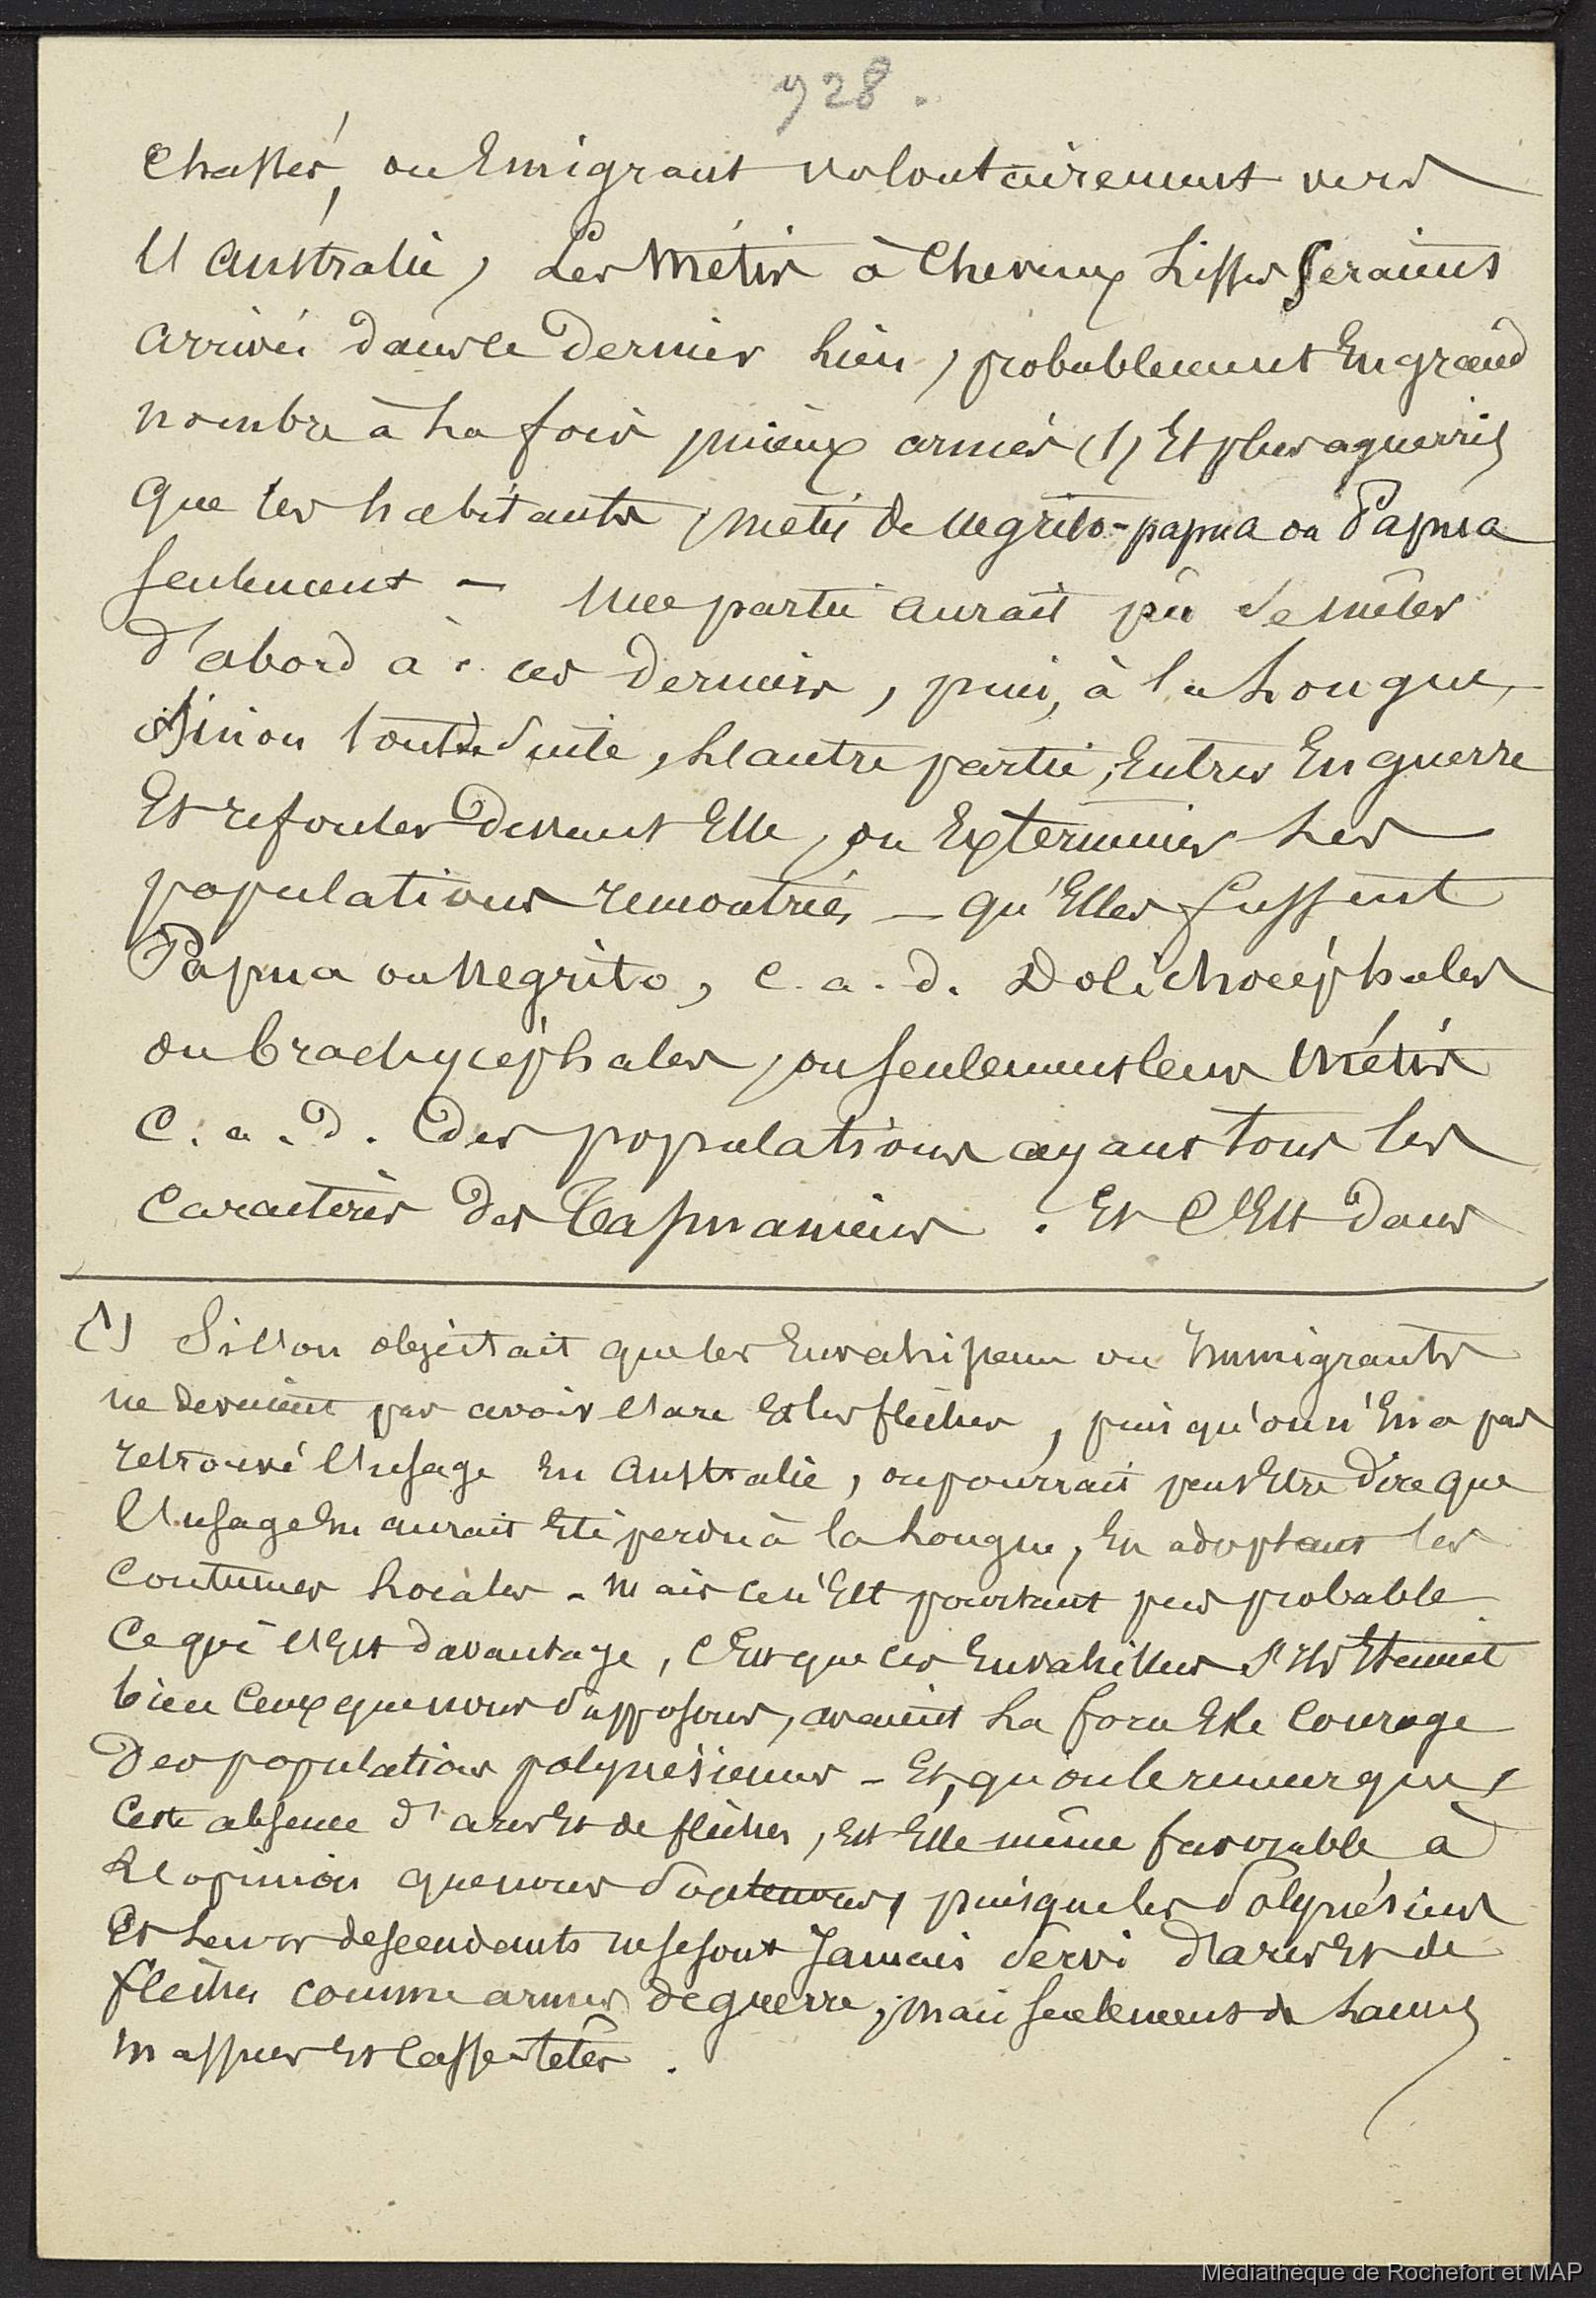 928.
Chassés, ou Emigrant volontairement vers
l'Australie, Les Métis à Cheveux Lisses Seraient
arrivés dans ce dernier lieu, probablement En grand
nombre à la fois mieux armés (1) Et plus aguerris
que les habitants, métis de negrito-papua ou Papua
Seulement — une partie aurait pû Se mêler
d'abord à ces derniers, puis, à la Longue,
Sinon tout de Suite, L'autre partie, Entrer En guerre
Et refouler devant Elle, ou Exterminer Les
populations rencontrées — qu'Elles fussent
Papua ou Negrito, c.a.d. Dolichocéphales
ou brachycéphales, ou Seulement leurs Métis
C.a.d. des populations ayant tous les
Caractères des Tasmaniens. Et C'Est dans
(1) Si l'on objectait que les Envahisseurs ou Immigrants
ne devaient pas avoir l'arc Et les flèches, puisqu'on n'En a pas
retrouvé l'usage En Australie, on pourrait peut Etre dire que
l'usage En aurait Eté perdu à la Longue, En adoptant les
Coutumes Locales - Mais ce n'Est pourtant peu probable
Ce qui l'Est davantage, C'Est que ces Envahisseurs S'ils Etaient
bien Ceux que nous Supposons, avaient La force Et le Courage
Des populations polynésiennes - Et, qu'on le remarque,
Cette absence d'arcs Et de flèches, Est Elle même favorable à
L'opinion que nous Soutenons, puisque les Polynésiens
Et Leurs descendants ne se sont Jamais Servi d'arcs Et de
flèches comme armes de guerre, mais Seulement de Lances
Massues Et Casse-têtes.
Médiathèque de Rochefort et MAP